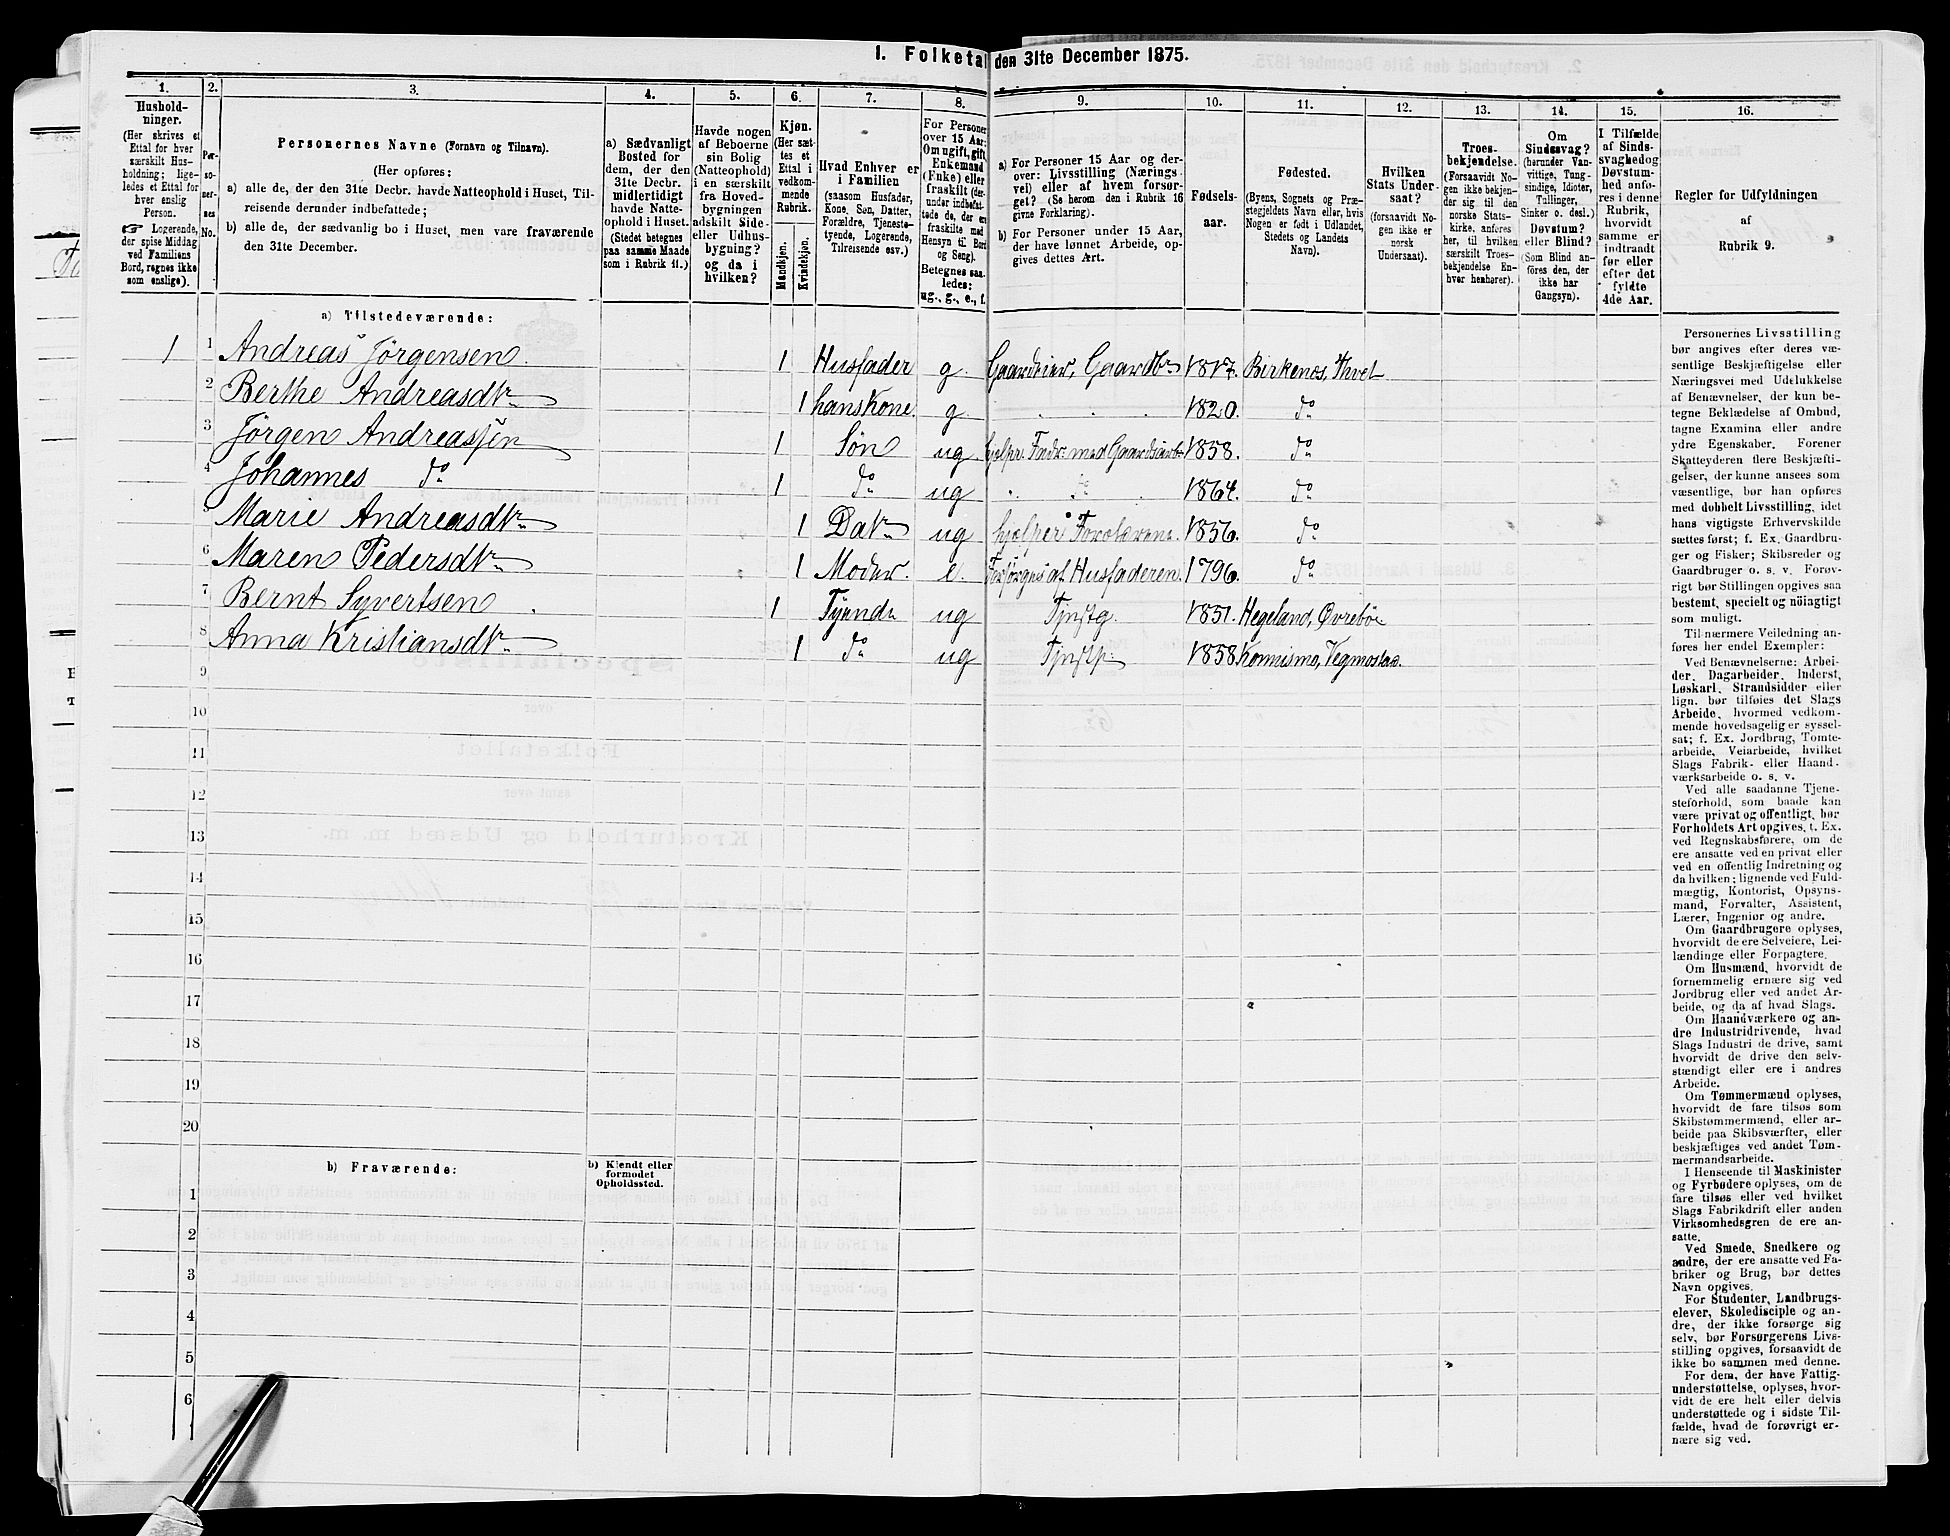 1. Folketal den 31te December 1875.
1. 2. 3. 4. 5. 6. 7. 8. 9. 10. 11. 12. 13. 14. 15. 16.
Hushold-
ninger.
(Her skrives et
Ettal for hver
særskilt Hus-
holdning; lige-
ledes et Ettal for
hver enslig
Person.
☞ Logerende,
der spise Middag
ved Familiens
Bord, regnes ikke
som enslige).
Per-
so-
ner-
nes
No.
Personernes Navne (Fornavn og Tilnavn).
(Her opføres:
a) alle de, der den 31te Decbr. havde Natteophold i Huset, Til-
reisende derunder indbefattede;
b) alle de, der sædvanlig bo i Huset, men vare fraværende
den 31te December.
a) Sædvanligt
Bosted for
dem, der den
31te Decbr.
midlertidigt
havde Natte-
ophold i Huset.
(Stedet betegnes
paa samme Maade
som i Rubrik 11.)
Havde nogen
af Beboerne
sin Bolig
(Natteophold)
i en særskilt
fra Hoved-
bygningen
adskilt Side-
eller Udhus-
bygning?
og da i
hvilken?
Kjøn.
(Her sæt-
tes et
Ettal i
vedkom-
mende
Rubrik.
Mandkjøn.
Kvindekjøn.
Hvad Enhver er
i Familien
(saasom Husfader,
Kone, Søn, Datter,
Forældre, Tjeneste-
tyende, Logerende,
Tilreisende osv.)
For Personer
over 15 Aar:
Om ugift, gift,
Enkemand
(Enke) eller
fraskilt (der-
under indbefat-
tede de, der ere
fraskilte med
Hensyn til Bord
og Seng).
Betegnes saa-
ledes:
ug., g., e., f.
a) For Personer 15 Aar og der-
over: Livsstilling (Nærings-
vei) eller af hvem forsør-
get? (Se herom den i Rubrik 16
givne Forklaring).
b) For Personer under 15 Aar,
der have lønnet Arbeide, op-
gives dettes Art.
Fødsels-
aar.
Fødested.
(Byens, Sognets og Præ-
stegjeldets Navn eller, hvis
Nogen er født i Udlandet,
Stedets og Landets
Navn).
Hvilken
Stats Under-
saat?
(forsaavidt No-
gen ikke er
norsk
Undersaat).
Troes-
bekjendelse.
(Forsaavidt No-
gen ikke bekjen-
der sig til den
norske Stats-
kirke, anføres
her, til hvilken
særskilt Troes-
bekjendelse En-
hver henhører).
Om
Sindssvag?
(herunder Van-
vittige, Tung-
sindige, Idioter,
Tullinger,
Sinker o. desl.)
Døvstum?
eller Blind?
(Som Blind an-
føres den, der
ikke har
Gangsyn).
I Tilfælde
af Sinds-
svaghed og
Døvstum-
hed anfø-
res i denne
Rubrik,
hvorvidt
samme er
indtraadt
før eller
efter det
fyldte
4de Aar.
Regler for Udfyldningen
af
Rubrik 9.
a) Tilstedeværende:
1 1 Andreas Jörgensen. 1 Husfader g. Gaardeier, Gaardbr. 1817. Birkenes, Thvet
2 Berthe Andreasdtr 1 hans Kone. g. " " 1820. do
3 Jörgen Andreassen 1 Søn ug hjelper Fadr. med Gaardsarb. 1858. do
4 Johannes do 1 do ug " do " 1864. do
5 Marie Andreasdtr 1 Datr ug hjelper Forældrene. 1856. do
6 Maren Pedersdtr 1 Moder. e. Forsörges af Husfaderen. 1796. do
7 Bernt Syvertsen 1 ug 1851. Hegeland, Øvrebö
8 Anna Kristiansdtr 1 do ug 1858.
9
10
11
12
13
14
15
16
17
18
19
20
b) Fraværende:
b) Kjendt eller
formodet
Opholdssted.
1
2
3
4
5
6
Personernes Livsstilling
bør angives efter deres væ-
sentlige Beskjæftigelse eller
Næringsvei med Udelukkelse
af Benævnelser, der kun be-
tegne Beklædelse af Ombud,
tagne Examina eller andre
ydre Egenskaber. Forener
Skatteyderen flere Beskjæfti-
gelser, der kunne ansees som
væsentlige, bør han opføres
med dobbelt Livsstilling, idet
hans vigtigste Erhvervskilde
sættes først; f. Ex. Gaardbru-
ger og Fisker; Skibsreder og
Gaardbruger o. s. v. Forøv-
rigt bør Stillingen opgives saa
bestemt, specielt og nöiagtigt
som muligt.
Til nærmere Veiledning an-
føres her endel Exempler:
Ved Benævnelserne: Arbei-
der, Dagarbeider, Inderst,
Løskarl, Strandsidder eller
lign. bør tilføies det Slags
Arbeide, hvormed vedkom-
mende hovedsagelig er syssel-
sat; f. Ex. Jordbrug, Tomte-
arbeide, Veiarbeide, hvilket
Slags Fabrik- eller Haand-
værksarbeide o. s. v.
Ved alle saadanne Tjene-
steforhold, som baade kan
være privat og offentligt, bør
Forholdets Art opgives, t. Ex.
ved Regnskabsførere, om de
ere ansatte ved en privat eller
ved en offentlig Indretning og
da hvilken; lignende ved Fuld-
mægtig, Kontorist, Opsyns-
mand, Forvalter, Assistent,
Lærer, Ingeniør og andre.
Om Gaardbrugere oplyses,
hvorvidt de ere Selveiere, Lei-
lændinge eller Forpagtere.
Om Husmænd, hvorvidt de
fornemmelig ernære sig ved
Jordbrug eller ved andet Ar-
beide, og da af hvad Slags.
Om Haandværkere og an-
dre Industridrivende, hvad
Slags Industri de drive, samt
hvorvidt de drive den selv-
stændigt eller ere i andres
Arbeide.
Om Tømmermænd oplyses,
hvorvidt de fare tilsøs som
Skibstømmermænd, eller ar-
beide paa Skibsværfter, eller
beskjæftiges ved andet Tøm-
mermandsarbeide.
I Henseende til Maskinister
og Fyrbødere oplyses, om de
fare tilsøs eller ved hvilket
Slags Fabrikdrift eller anden
Virksomhedsgren de ere an-
satte.
Ved Smede, Snedkere og
andre, der ere ansatte ved Fa-
briker og Brug, bør dettes
Navn opgives.
For Studenter, Landbrugs-
elever, Skoledisciple og an-
dre, der ikke forsørge sig
selv, bør Forsørgerens Livs-
stilling opgives, forsaavidt de
ikke bo sammen med denne.
For dem, der have Fattig-
understøttelse, oplyses, hvor-
vidt de ere helt eller delvis
understøttede og i sidste Til-
fælde, hvad de forøvrigt er-
nære sig ved.